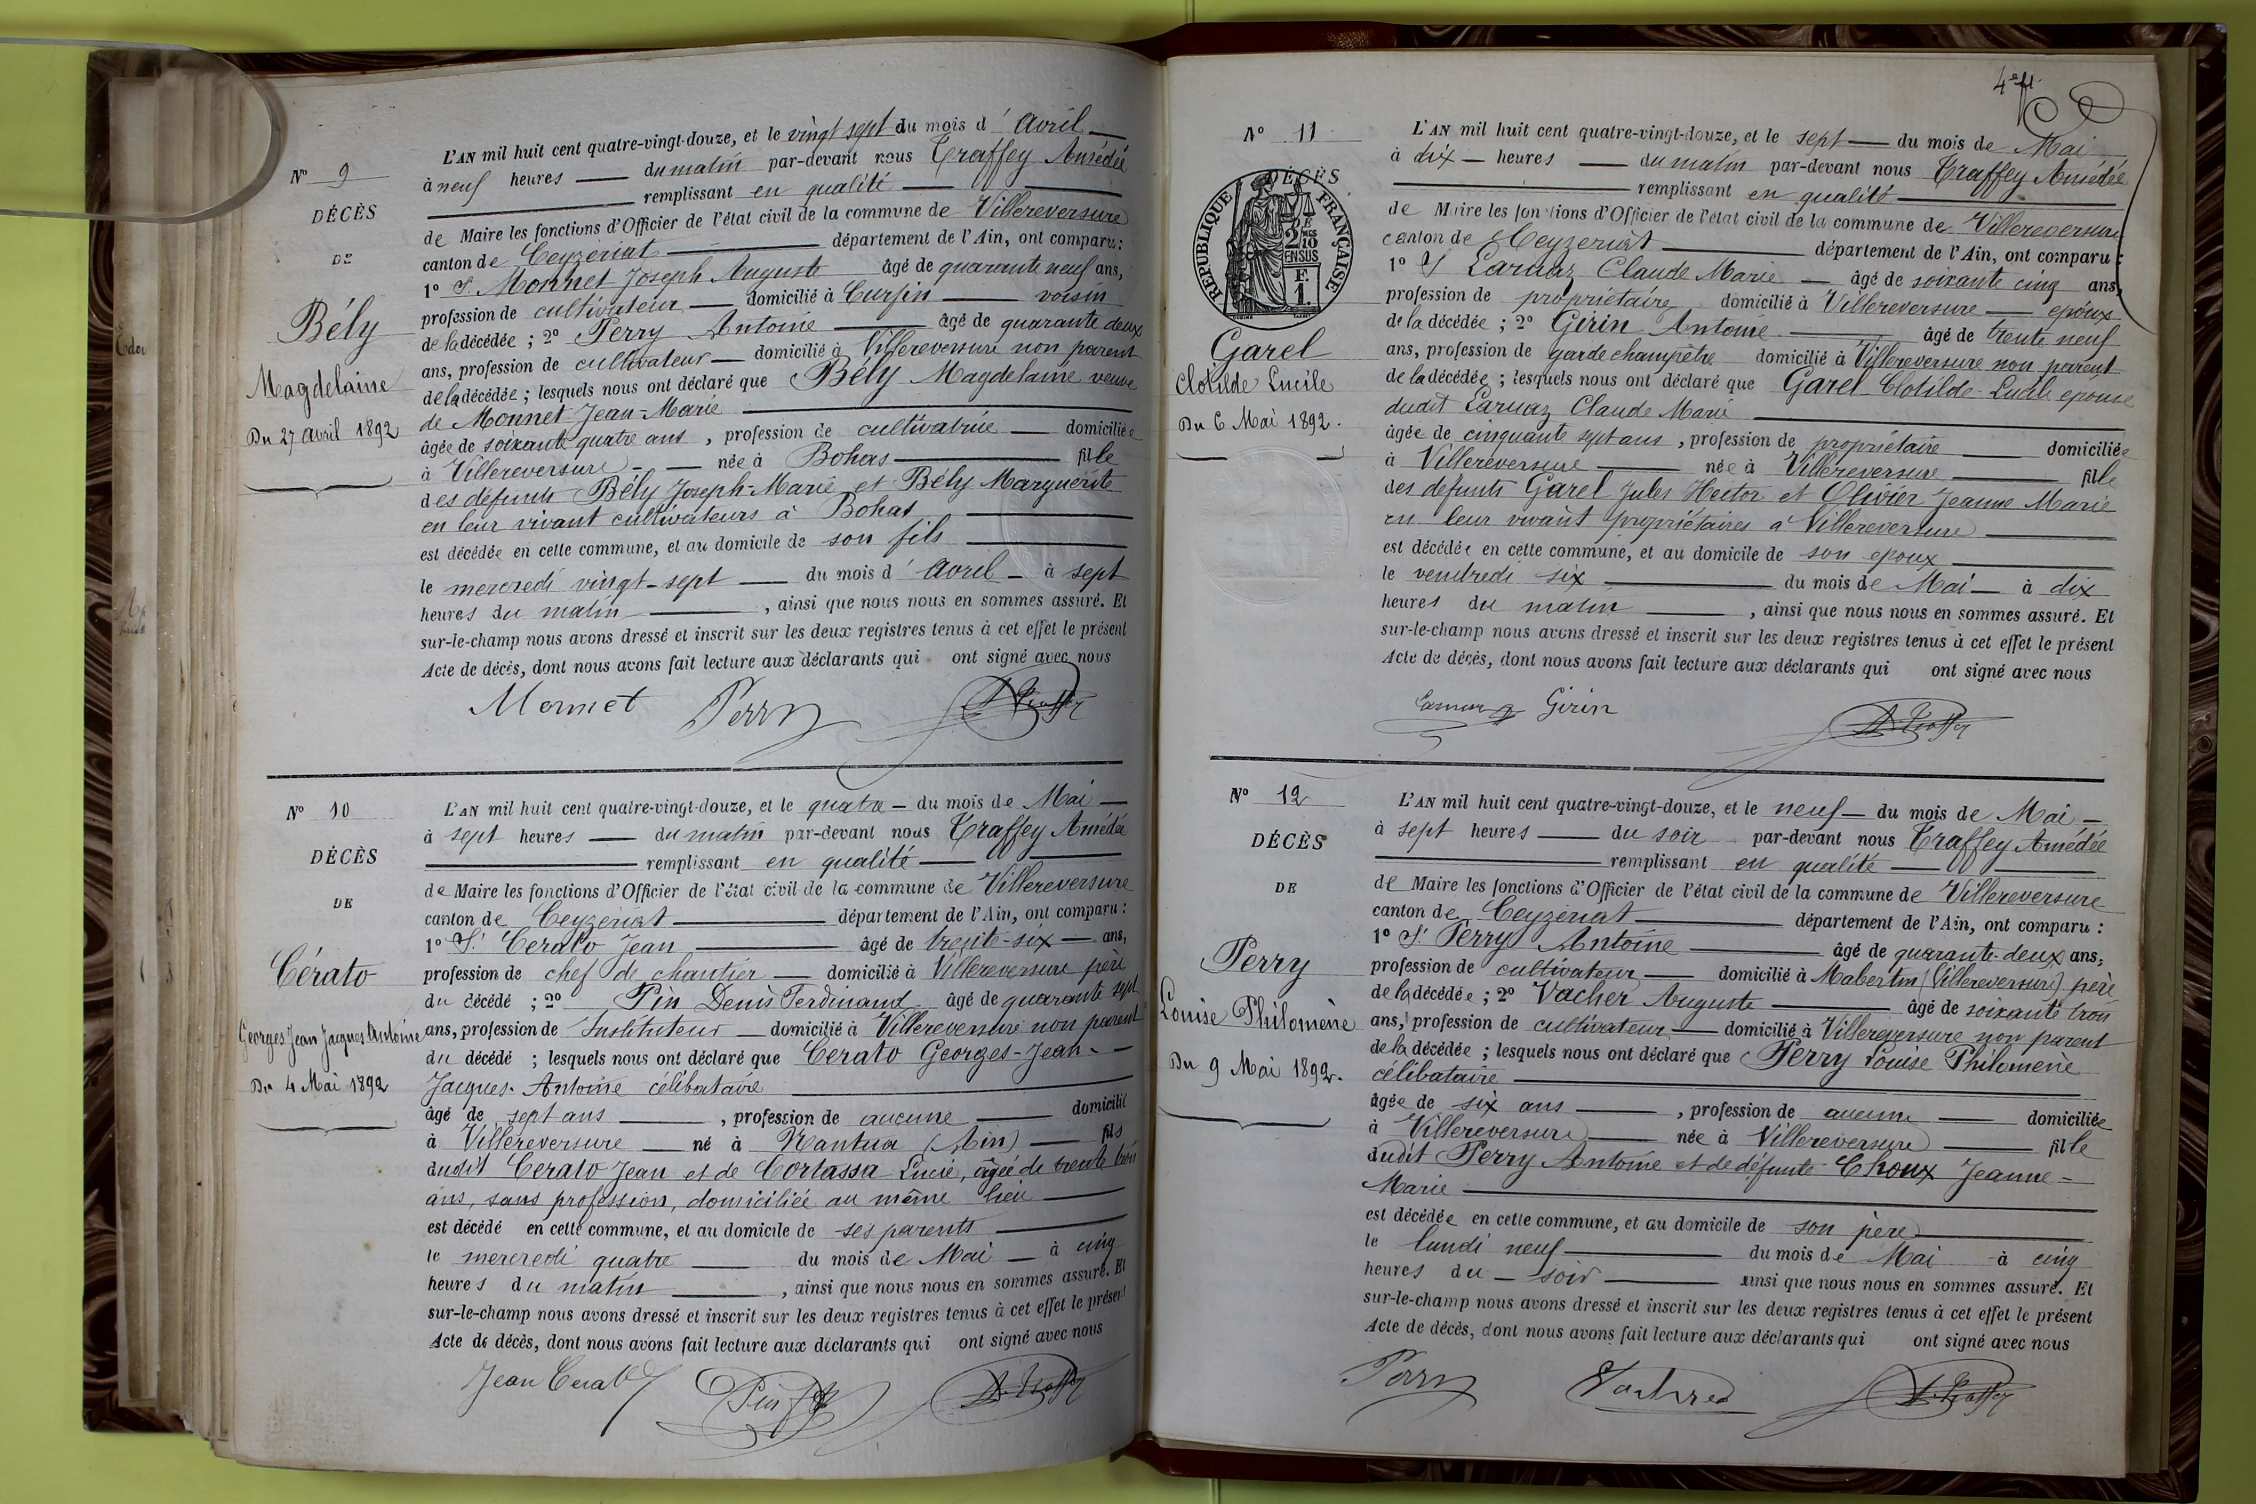 N° 9
DÉCÈS
DE
Bély
Magdelaine
Du 27 avril 1892
L'AN mil huit cent quatre-vingt-douze, et le vingt sept du mois d' Avril
à neuf heures du matin par-devant nous Traffey Amédée
remplissant en qualité
de Maire les fonctions d'Officier de l'état civil de la commune de Villereversure
canton de Ceyzériat département de l'Ain, ont comparu :
1° S. Monnet Joseph Auguste âgé de quarante neuf ans,
profession de cultivateur domicilié à Cursin voisin
de la décédée ; 2° Perry Antoine âgé de quarante deux
ans, profession de cultivateur domicilié à Villereversure non parent
de la décédée ; lesquels nous ont déclaré que Bély Magdelaine veuve
de Monnet Jean-Marie
âgée de soixante quatre ans , profession de cultivatrice domiciliée
à Villereversure née à Bohas fille
des défunts Bély Joseph-Marie et Bély Marguerite
en leur vivant cultivateurs à Bohas
est décédée en cette commune, et au domicile de son fils
le mercredi vingt-sept du mois d' Avril à sept
heures du matin , ainsi que nous nous en sommes assuré. Et
sur-le-champ nous avons dressé et inscrit sur les deux registres tenus à cet effet le présent
Acte de décès, dont nous avons fait lecture aux déclarants qui ont signé avec nous
Monnet Perry A. Traffey
N° 10
DÉCÈS
DE
Cérato
Georges Jean Jacques Antoine
Du 4 Mai 1892
L'AN mil huit cent quatre-vingt-douze, et le quatre du mois de Mai
à sept heures du matin par-devant nous Traffey Amédée
remplissant en qualité
de Maire les fonctions d'Officier de l'état civil de la commune de Villereversure
canton de Ceyzériat département de l'Ain, ont comparu :
1° S. Cerato Jean âgé de trente-six ans,
profession de chef de chantier domicilié à Villereversure père
du décédé ; 2° Pin Denis Ferdinand âgé de quarante sept
ans, profession de Instituteur domicilié à Villereversure non parent
du décédé ; lesquels nous ont déclaré que Cerato Georges-Jean-
Jacques-Antoine célibataire
âgé de sept ans , profession de aucune domicilié
à Villereversure né à Nantua (Ain) fils
dudit Cerato Jean et de Cortassa Lucie, âgée de trente trois
ans, sans profession, domiciliée au même lieu
est décédé en cette commune, et au domicile de ses parents
le mercredi quatre du mois de Mai à cinq
heures du matin , ainsi que nous nous en sommes assuré. Et
sur-le-champ nous avons dressé et inscrit sur les deux registres tenus à cet effet le présent
Acte de décès, dont nous avons fait lecture aux déclarants qui ont signé avec nous
Jean Cerato Pin A. Traffey
4e ft
N° 11
DÉCÈS
RÉPUBLIQUE FRANÇAISE
2 DES 10 EN SUS
F. 1.
Garel
Clotilde Lucile
Du 6 Mai 1892.
L'AN mil huit cent quatre-vingt-douze, et le sept du mois de Mai
à dix heures du matin par-devant nous Traffey Amédée
remplissant en qualité
de Maire les fonctions d'Officier de l'état civil de la commune de Villereversure
canton de Ceyzériat département de l'Ain, ont comparu :
1° S Larnaz Claude Marie âgé de soixante cinq ans,
profession de propriétaire domicilié à Villereversure époux
de la décédée ; 2° Girin Antoine âgé de trente neuf
ans, profession de garde champêtre domicilié à Villereversure non parent
de la décédée ; lesquels nous ont déclaré que Garel Clotilde-Lucile épouse
dudit Larnaz Claude Marie
âgée de cinquante sept ans , profession de propriétaire domiciliée
à Villereversure née à Villereversure fille
des défunts Garel Jules Hector et Olivier Jeanne Marie
en leur vivant propriétaires à Villereversure
est décédée en cette commune, et au domicile de son époux
le vendredi six du mois de Mai à dix
heures du matin , ainsi que nous nous en sommes assuré. Et
sur-le-champ nous avons dressé et inscrit sur les deux registres tenus à cet effet le présent
Acte de décès, dont nous avons fait lecture aux déclarants qui ont signé avec nous
Larnaz Girin A. Traffey
N° 12
DÉCÈS
DE
Perry
Louise Philomène
Du 9 Mai 1892.
L'AN mil huit cent quatre-vingt-douze, et le neuf du mois de Mai
à sept heures du soir par-devant nous Traffey Amédée
remplissant en qualité
de Maire les fonctions d'Officier de l'état civil de la commune de Villereversure
canton de Ceyzériat département de l'Ain, ont comparu :
1° S. Perry Antoine âgé de quarante-deux ans,
profession de cultivateur domicilié à Mabertin (Villereversure) père
de la décédée ; 2° Vacher Auguste âgé de soixante trois
ans, profession de cultivateur domicilié à Villereversure non parent
de la décédée ; lesquels nous ont déclaré que Perry Louise Philomène
célibataire
âgée de six ans , profession de aucune domiciliée
à Villereversure née à Villereversure fille
dudit Perry Antoine et de défunte Choux Jeanne-
Marie
est décédée en cette commune, et au domicile de son père
le lundi neuf du mois de Mai à cinq
heures du soir ainsi que nous nous en sommes assuré. Et
sur-le-champ nous avons dressé et inscrit sur les deux registres tenus à cet effet le présent
Acte de décès, dont nous avons fait lecture aux déclarants qui ont signé avec nous
Perry Vacher A. Traffey